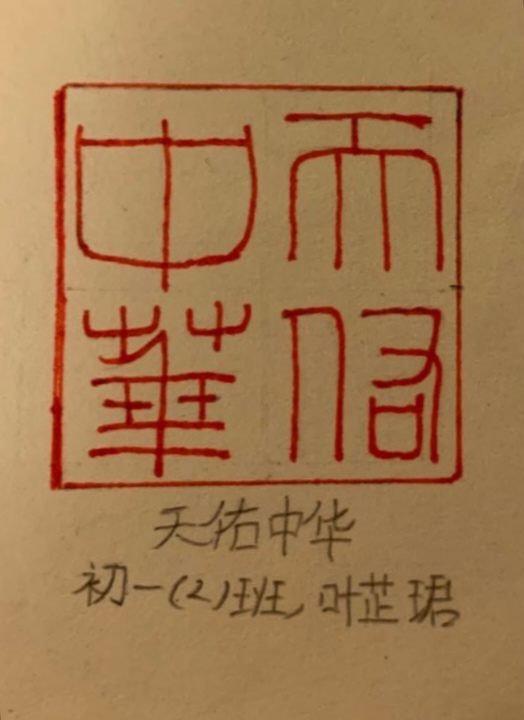 天佑
中華
天佑中华
初一(2)班,叶芷珺